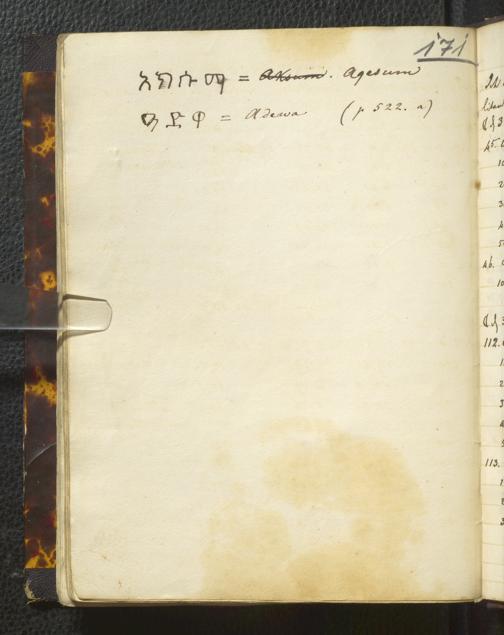 171
አክሱማ = ~~Aksum~~. Agesum
ዓድዋ = Adewa (p 522. a)
45.
10
2
3
4
5
46.
10
112.
1
2
3
4
5
113.
1
2
3